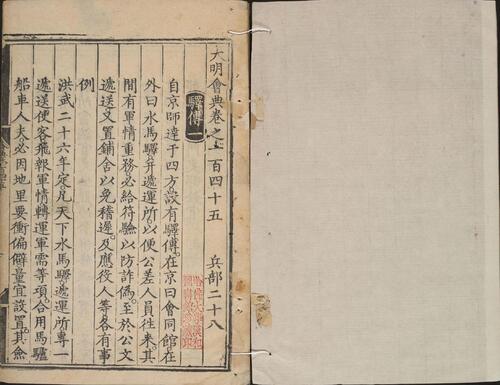 大明會典卷之一百四十五 兵部二十八
驛傳一
自京師達于四方設有驛傳。在京曰會同館。在
外曰水馬驛并遞運所。以便公差人員往來。其
間有軍情重務必給符驗以防詐偽。至於公文
遞送又置鋪舍以免稽遲。及應役人等各有事
例
洪武二十六年定凡天下水馬驛遞運所專一
遞送使客飛報軍情轉運軍需等項。合用馬驢
船車人夫必因地里要衝偏僻量宜設置。其僉